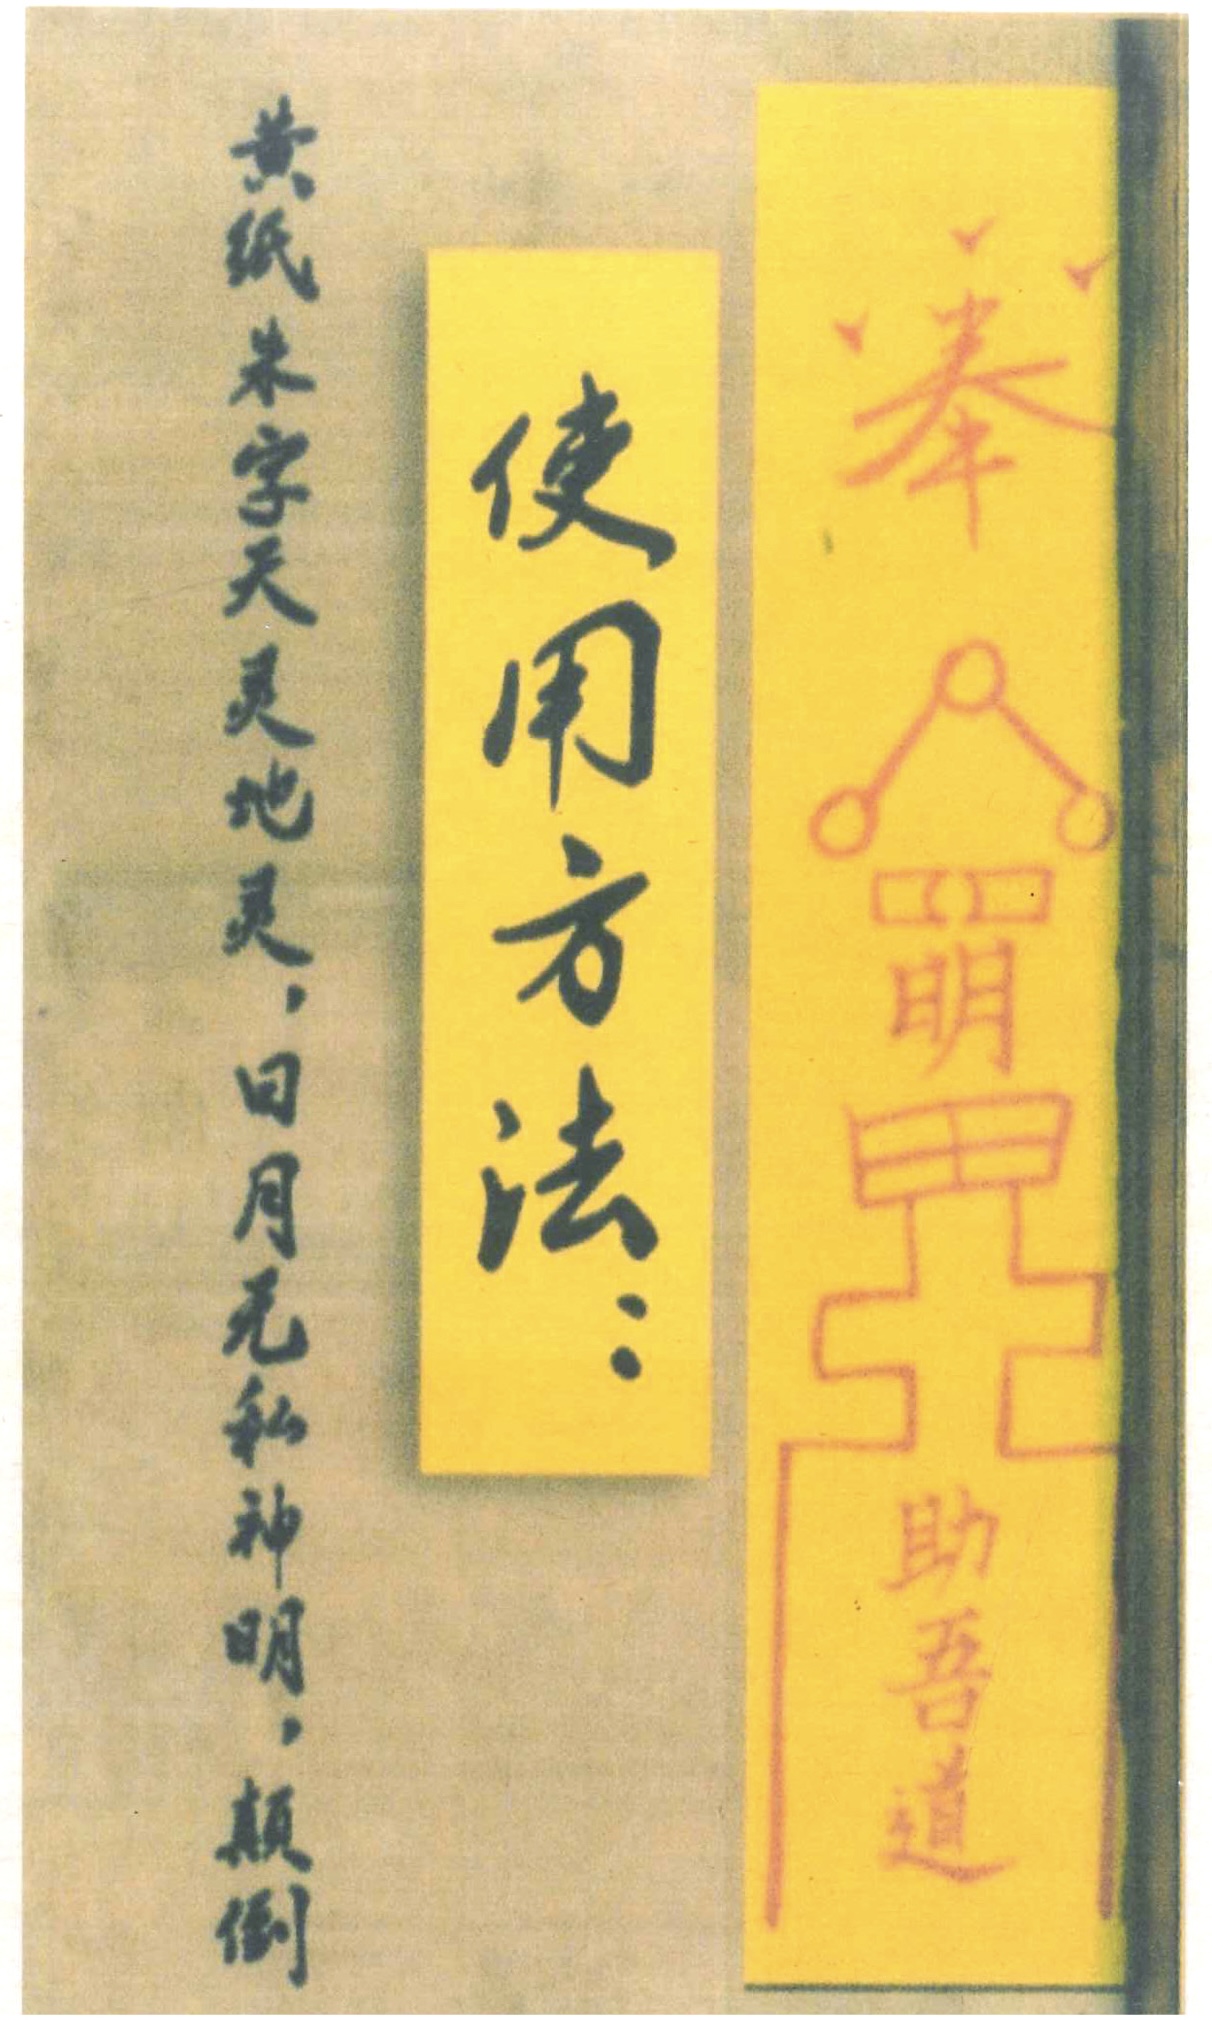 奉
明
助吾道
使用方法：
黄纸朱字天灵地灵，日月无私神明，颠倒